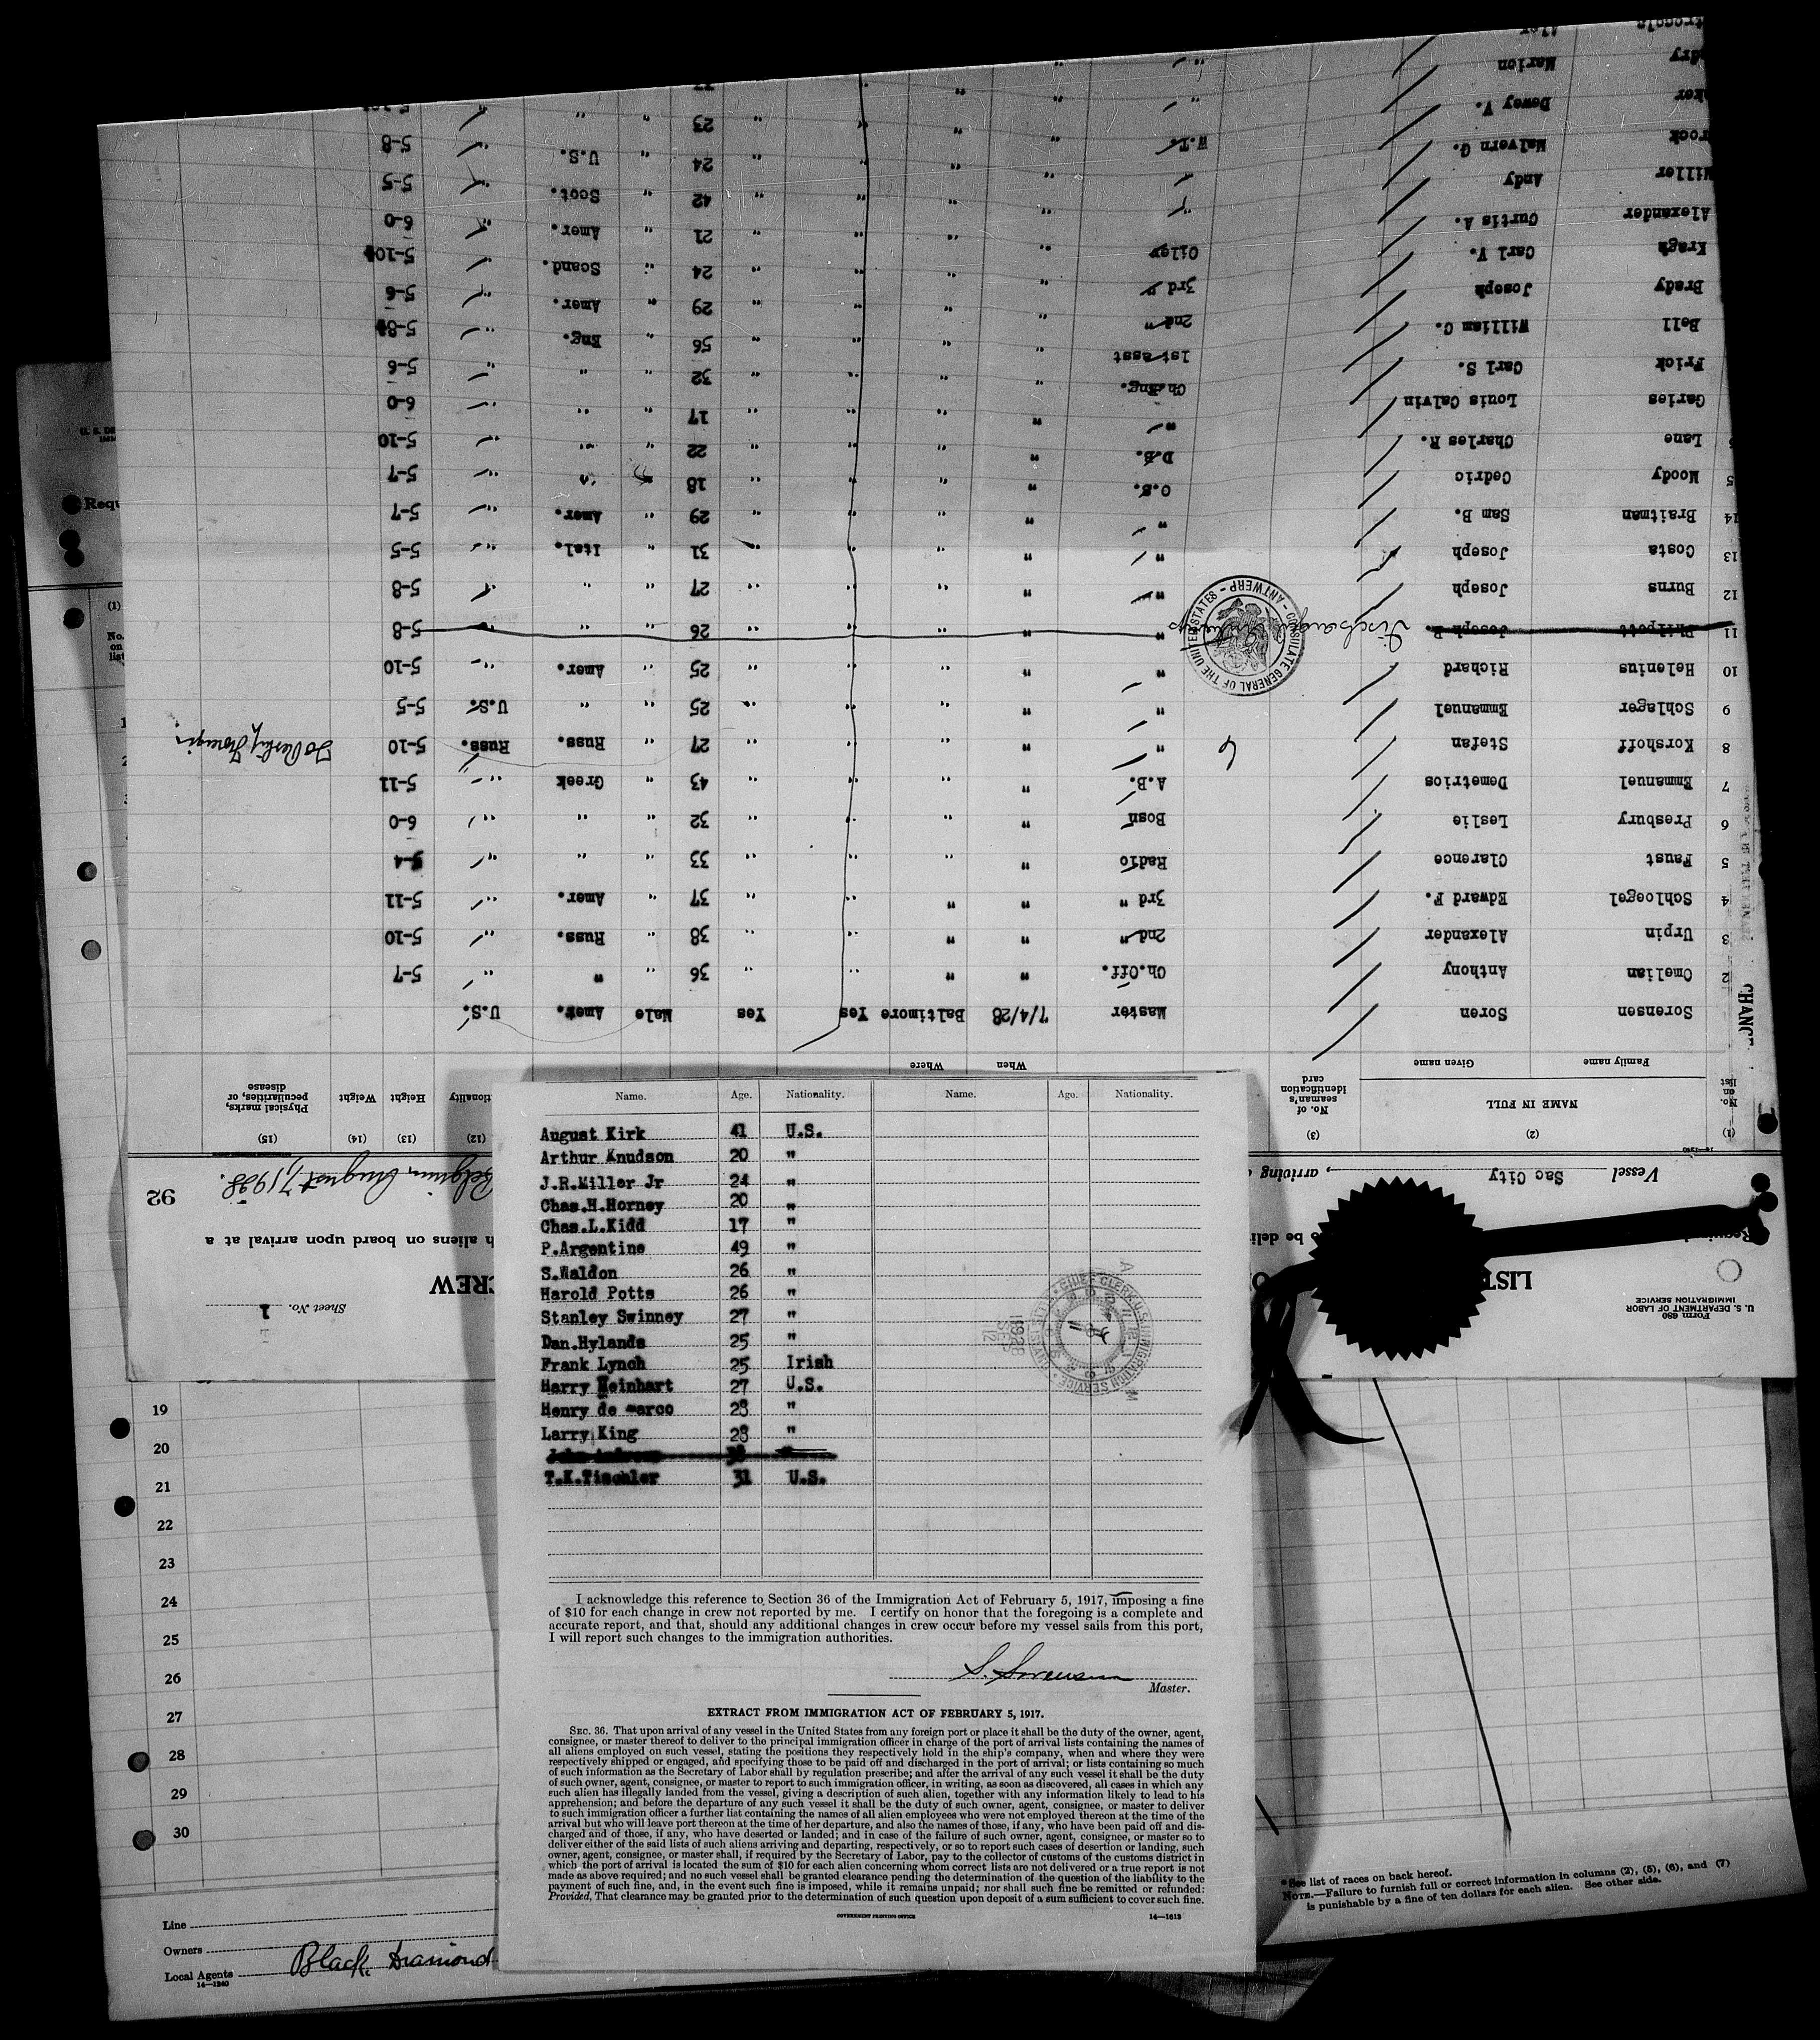 Name. Age. Nationality. Name. Age. Nationality.
August Kirk 41 U.S.
Arthur Knudson 20 "
J.R.Miller Jr 24 "
Chas.H.Horney 20 "
Chas.L.Kidd 17 "
P.Argentine 49 "
S.Waldon 26 "
Harold Potts 26 "
Stanley Swinney 27 "
Dan.Hylands 25 "
Frank Lynch 25 Irish
Harry Heinhart 27 U.S.
Henry de marco 28 "
Larry King 28 "
T.K.Tischler 31 U.S.
I acknowledge this reference to Section 36 of the Immigration Act of February 5, 1917, imposing a fine
of $10 for each change in crew not reported by me. I certify on honor that the foregoing is a complete and
accurate report, and that, should any additional changes in crew occur before my vessel sails from this port,
I will report such changes to the immigration authorities.
S. Sorensen
Master.
EXTRACT FROM IMMIGRATION ACT OF FEBRUARY 5, 1917.
SEC. 36. That upon arrival of any vessel in the United States from any foreign port or place it shall be the duty of the owner, agent,
consignee, or master thereof to deliver to the principal immigration officer in charge of the port of arrival lists containing the names of
all aliens employed on such vessel, stating the positions they respectively hold in the ship's company, when and where they were
respectively shipped or engaged, and specifying those to be paid off and discharged in the port of arrival; or lists containing so much
of such information as the Secretary of Labor shall by regulation prescribe; and after the arrival of any such vessel it shall be the duty
of such owner, agent, consignee, or master to report to such immigration officer, in writing, as soon as discovered, all cases in which any
such alien has illegally landed from the vessel, giving a description of such alien, together with any information likely to lead to his
apprehension; and before the departure of any such vessel it shall be the duty of such owner, agent, consignee, or master to deliver
to such immigration officer a further list containing the names of all alien employees who were not employed thereon at the time of the
arrival but who will leave port thereon at the time of her departure, and also the names of those, if any, who have been paid off and dis-
charged and of those, if any, who have deserted or landed; and in case of the failure of such owner, agent, consignee, or master so to
deliver either of the said lists of such aliens arriving and departing, respectively, or so to report such cases of desertion or landing, such
owner, agent, consignee, or master shall, if required by the Secretary of Labor, pay to the collector of customs of the customs district in
which the port of arrival is located the sum of $10 for each alien concerning whom correct lists are not delivered or a true report is not
made as above required; and no such vessel shall be granted clearance pending the determination of the question of the liability to the
payment of such fine, and, in the event such fine is imposed, while it remains unpaid; nor shall such fine be remitted or refunded:
Provided, That clearance may be granted prior to the determination of such question upon deposit of a sum sufficient to cover such fine.
GOVERNMENT PRINTING OFFICE 14—1613
Form 680
U. S. DEPARTMENT OF LABOR
IMMIGRATION SERVICE
LIST
CREW
Sheet No. 1
aliens on board upon arrival at a
92
Vessel Sac City, arriving
Belgium, August 7, 1928.
(1) (2) (3) (12) (13) (14) (15)
No. on list NAME IN FULL No. of seaman's identification card Height Weight Physical marks, peculiarities, or disease
Family name Given name When Where
Sorensen Soren Master 7/4/28 Baltimore Yes Yes 36 Male Amer. U.S.
2 Omelian Anthony Ch.Off. " " " " 36 " " " 5-7
3 Urpin Alexander 2nd " " " " " 38 " Russ. " 5-10
4 Schloegel Edward F. 3rd " " " " " 37 " Amer. " 5-11
5 Faust Clarence Radio " " " " 33 " " " 5-4
6 Presbury Leslie Bosn " " " " 32 " " " 6-0
7 Emmanuel Demetrios A.B. " " " " 43 " Greek " 5-11
8 Korshoff Stefan 6 " " " " " 27 " Russ. Russ. 5-10
9 Schlager Emmanuel " " " " " 25 " " U.S. 5-5
10 Helenius Richard " " " " " 25 " Amer. " 5-10
11 Philpott Joseph P. " " " " " 26 " " " 5-8
12 Burns Joseph " " " " " 27 " " " 5-8
13 Costa Joseph " " " " " 31 " Ital. " 5-5
14 Braitman Sam B. " " " " " 29 " Amer. " 5-7
Moody Cedric O.S. " " " " 18 " " " 5-7
Lane Charles R. D.B. " " " " 22 " " " 5-10
Garies Louis Calvin " " " " " 17 " " " 6-0
Frick Carl S. Ch.Eng. " " " " 32 " " " 5-6
Bell William C. 1st asst " " " " 56 " Eng. " 5-8
Brady Joseph 2nd " " " " " 29 " Amer. " 5-6
Kragh Carl V. 3rd " " " " " 24 " Scand. " 5-10
Alexander Curtis A. Oiler " " " " 21 " Amer. " 6-0
Miller Andy " " " " " 42 " Scot. " 5-5
Malvern G. " " " " " 24 " U.S. " 5-8
Dewey V. W.T. " " " " 23 " " "
Marion
CONSULATE GENERAL OF THE UNITED STATES - ANTWERP -
CHIEF CLERK U.S. IMMIGRATION SERVICE
SEP 12 1928
19
20
21
22
23
24
25
26
27
28
29
30
Line
Owners
Local Agents Black Diamond
14—1240
* See list of races on back hereof.
NOTE.—Failure to furnish full or correct information in columns (2), (5), (6), and (7)
is punishable by a fine of ten dollars for each alien. See other side.